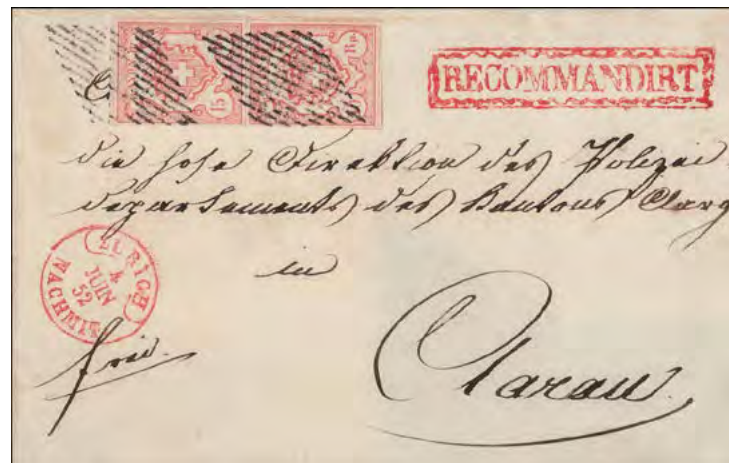 15 15 Rp.
RECOMMANDIRT
An
die hohe Direktion des Polizei-
departements des Kantons Aarg
in
ZÜRICH
4
JUIN
52
NACHMIT
frei.
Aarau.